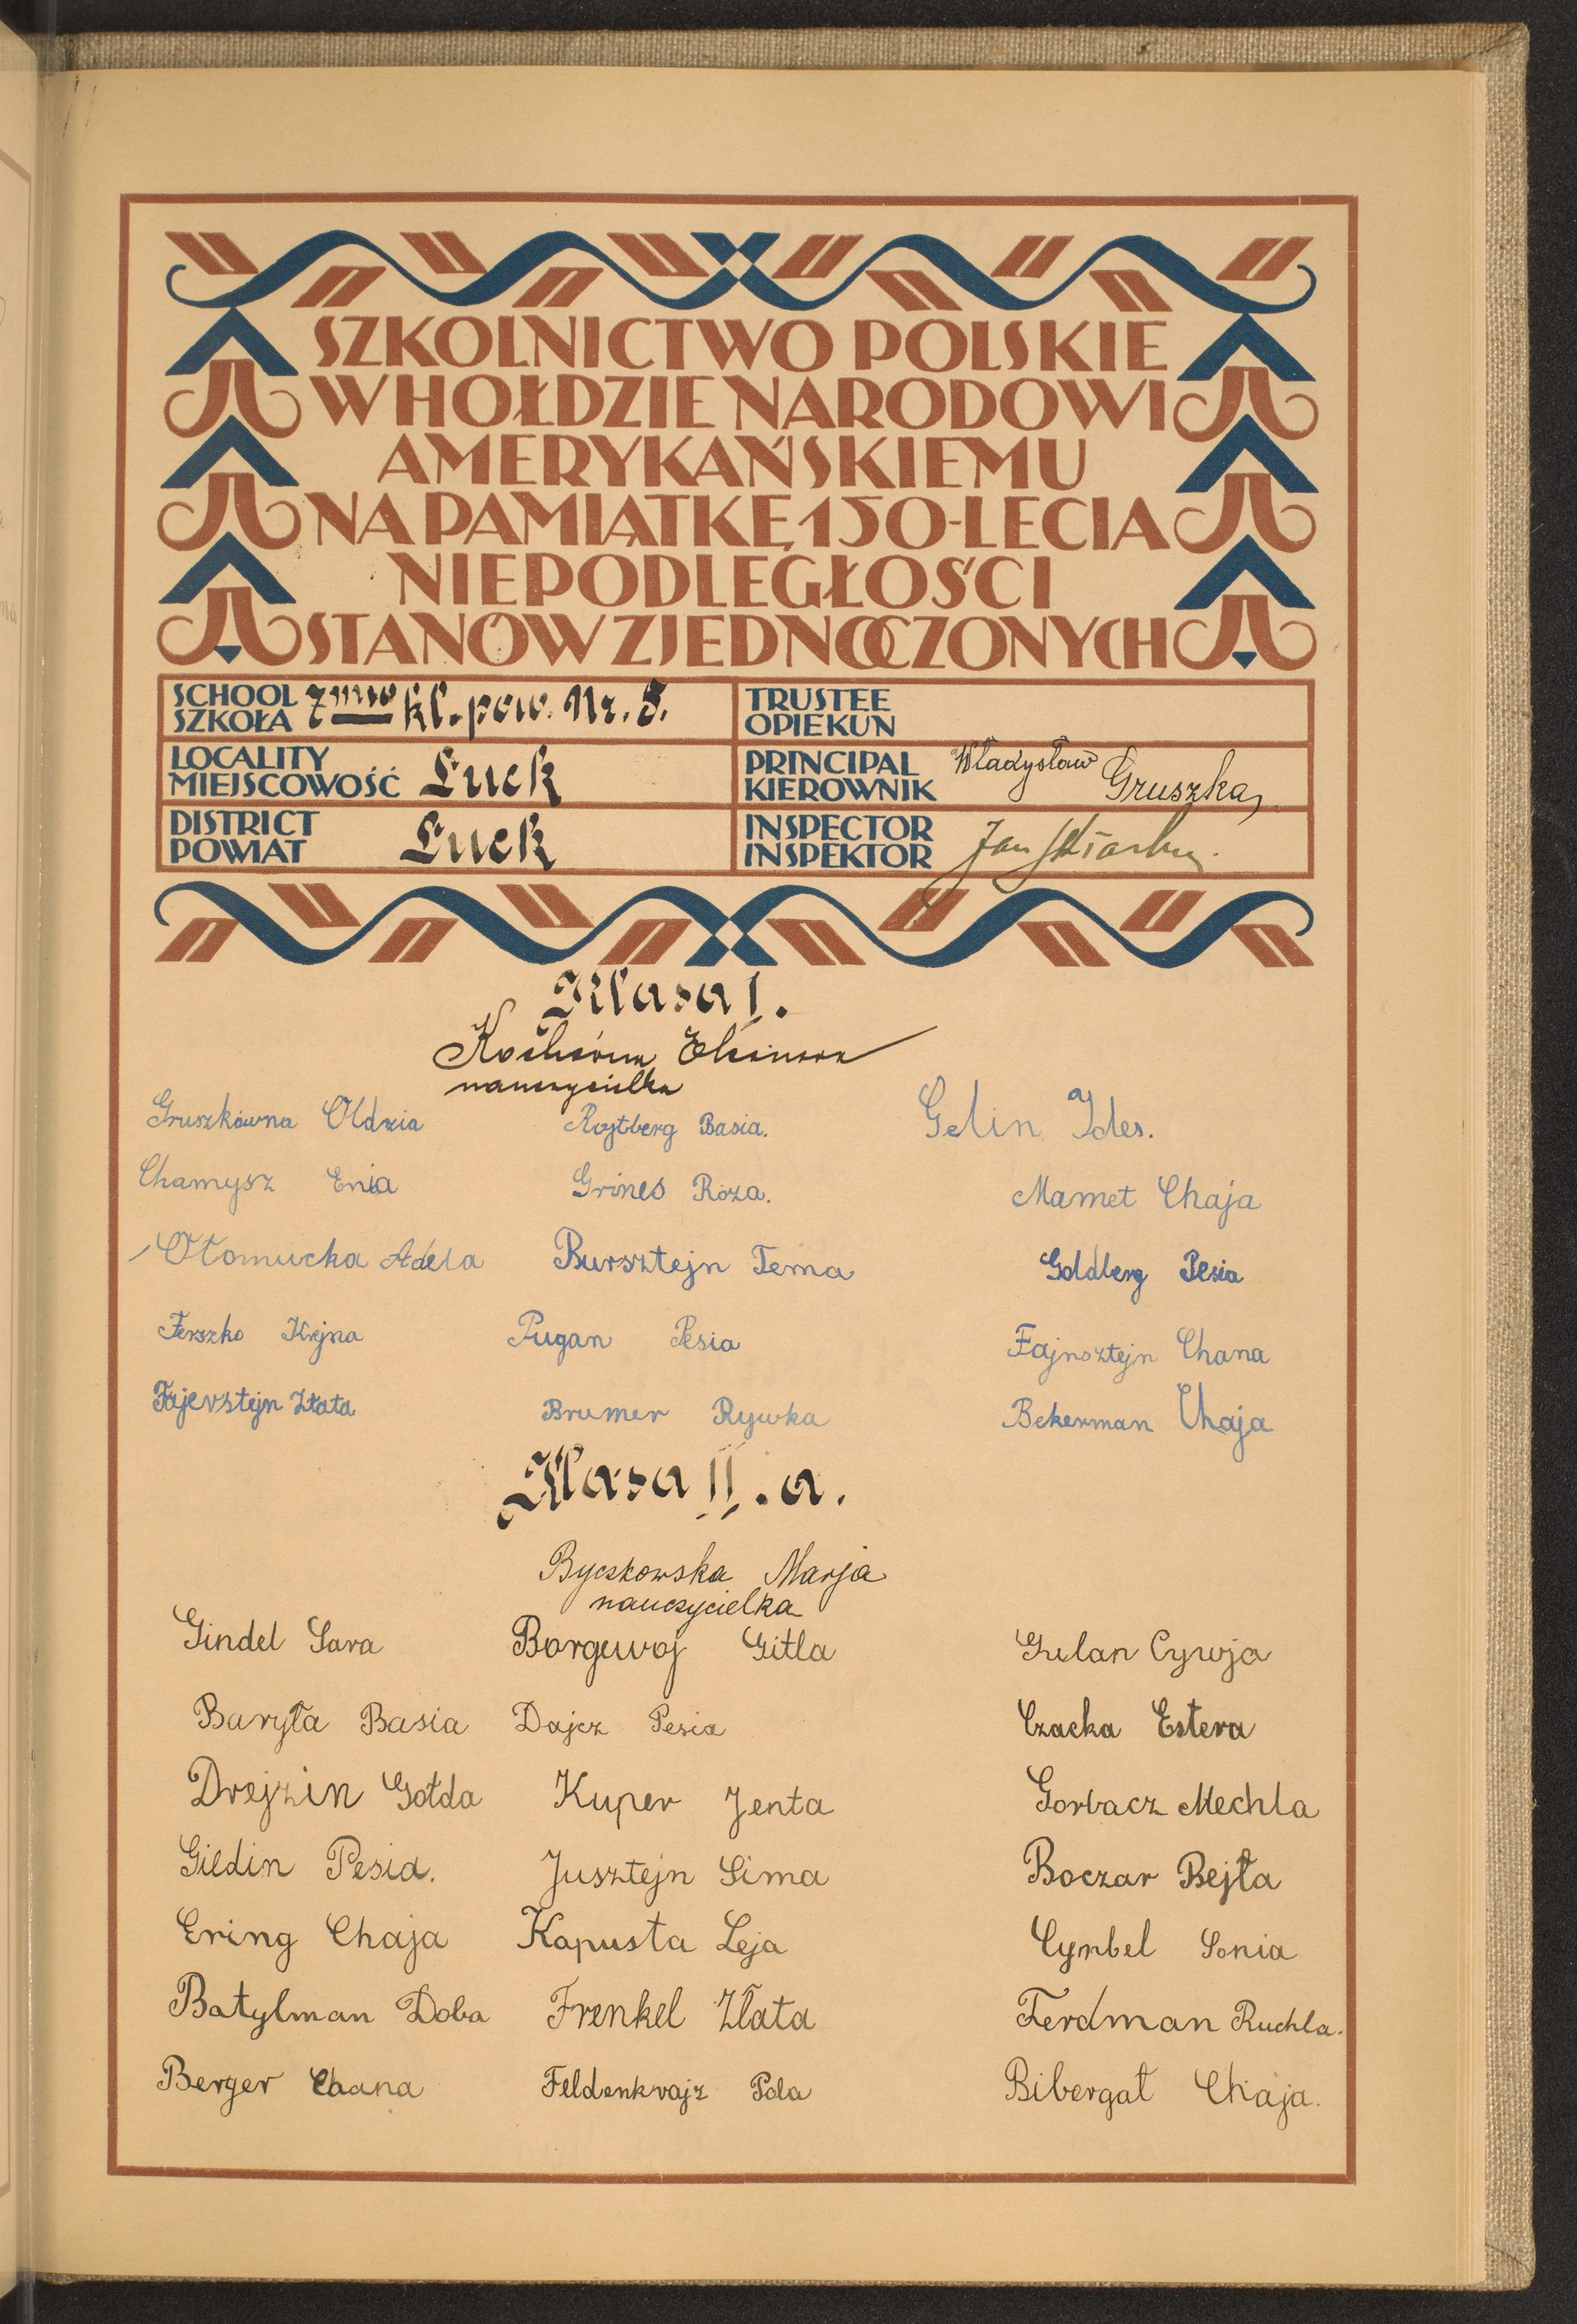 SZKOLNICTWO POLSKIE
W HOŁDZIE NARODOWI
AMERYKAŃSKIEMU
NA PAMIĄTKĘ 150-LECIA
NIEPODLEGŁOŚCI
STANÓW ZJEDNOCZONYCH
SCHOOL
SZKOŁA 7mio kl. pow. Nr. 5.
TRUSTEE
OPIEKUN
LOCALITY
MIEJSCOWOŚĆ Łuck
PRINCIPAL
KIEROWNIK Władysław Gruszka
DISTRICT
POWIAT Łuck
INSPECTOR
INSPEKTOR Jan
Klasa I.
nauczycielka
Gruszkówna Oldzia Rojtberg Basia. Gelin Ides.
Chamysz Enia Grines Róza. Mamet Chaja
Ołomucka Adela Bursztejn Tema Goldberg Pesia
Ferszko Krejna Pugan Pesia Fajnsztejn Chana
Fajersztejn Złata Brumer Rywka Bekerman Chaja
Klasa II. a.
Byczkowska Marja
nauczycielka
Gindel Sara Borguwoj Gitla Gulan Cywja
Baryła Basia Dajcz Pesia Czacka Estera
Drejzin Gołda Kuper Jenta Gorbacz Mechla
Gildin Pesia. Jusztejn Sima Boczar Bejła
Ering Chaja Kapusta Leja Cymbel Sonia
Batylman Doba Frenkel Złata Ferdman Ruchla.
Berger Chana Feldenkrajz Pola Bibergał Chaja.